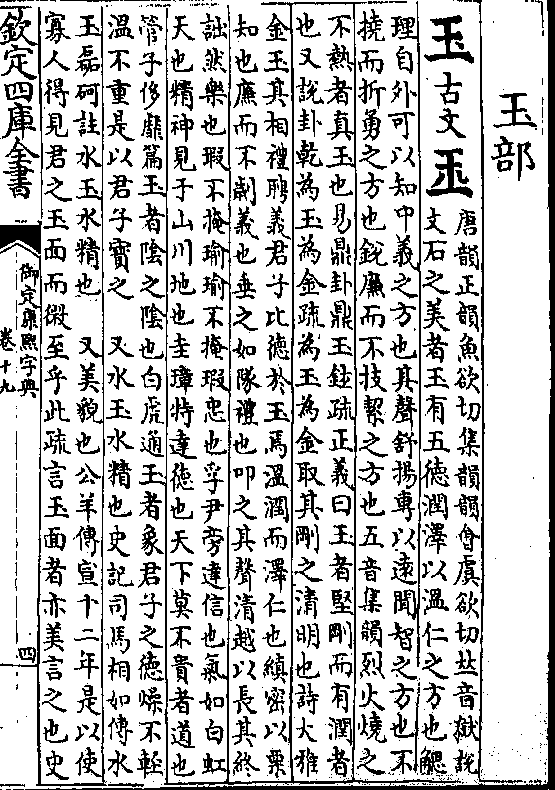 玉部
玉古文𤣪唐韻正韻魚欲切集韻韻會虞欲切𠀤音獄說
文石之美者玉有五德潤澤以溫仁之方也䚡
理自外可以知中義之方也其聲舒揚專以遠聞智之方也不
撓而折勇之方也銳廉而不技絜之方也五音集韻烈火燒之
不熱者真玉也易鼎卦鼎玉鉉疏正義曰玉者堅剛而有潤者
也又說卦乾為玉為金疏為玉為金取其剛之清明也詩大雅
金玉其相禮聘義君子比德於玉焉溫潤而澤仁也縝密以栗
知也廉而不劌義也垂之如隊禮也叩之其聲清越以長其終
詘然樂也瑕不掩瑜瑜不掩瑕忠也孚尹旁達信也氣如白虹
天也精神見于山川地也圭璋特達德也天下莫不貴者道也
管子侈靡篇玉者隂之隂也白虎通玉者象君子之德燥不輕
溫不重是以君子寶之　又水玉水精也史記司馬相如傳水
玉磊砢註水玉水精也　又美貌也公羊傳宣十二年是以使
寡人得見君之玉面而微至乎此疏言玉面者亦美言之也史
欽定四庫全書
御定康熙字典
卷十九
四